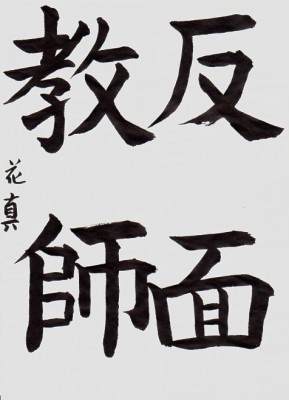 反面
教師
花真